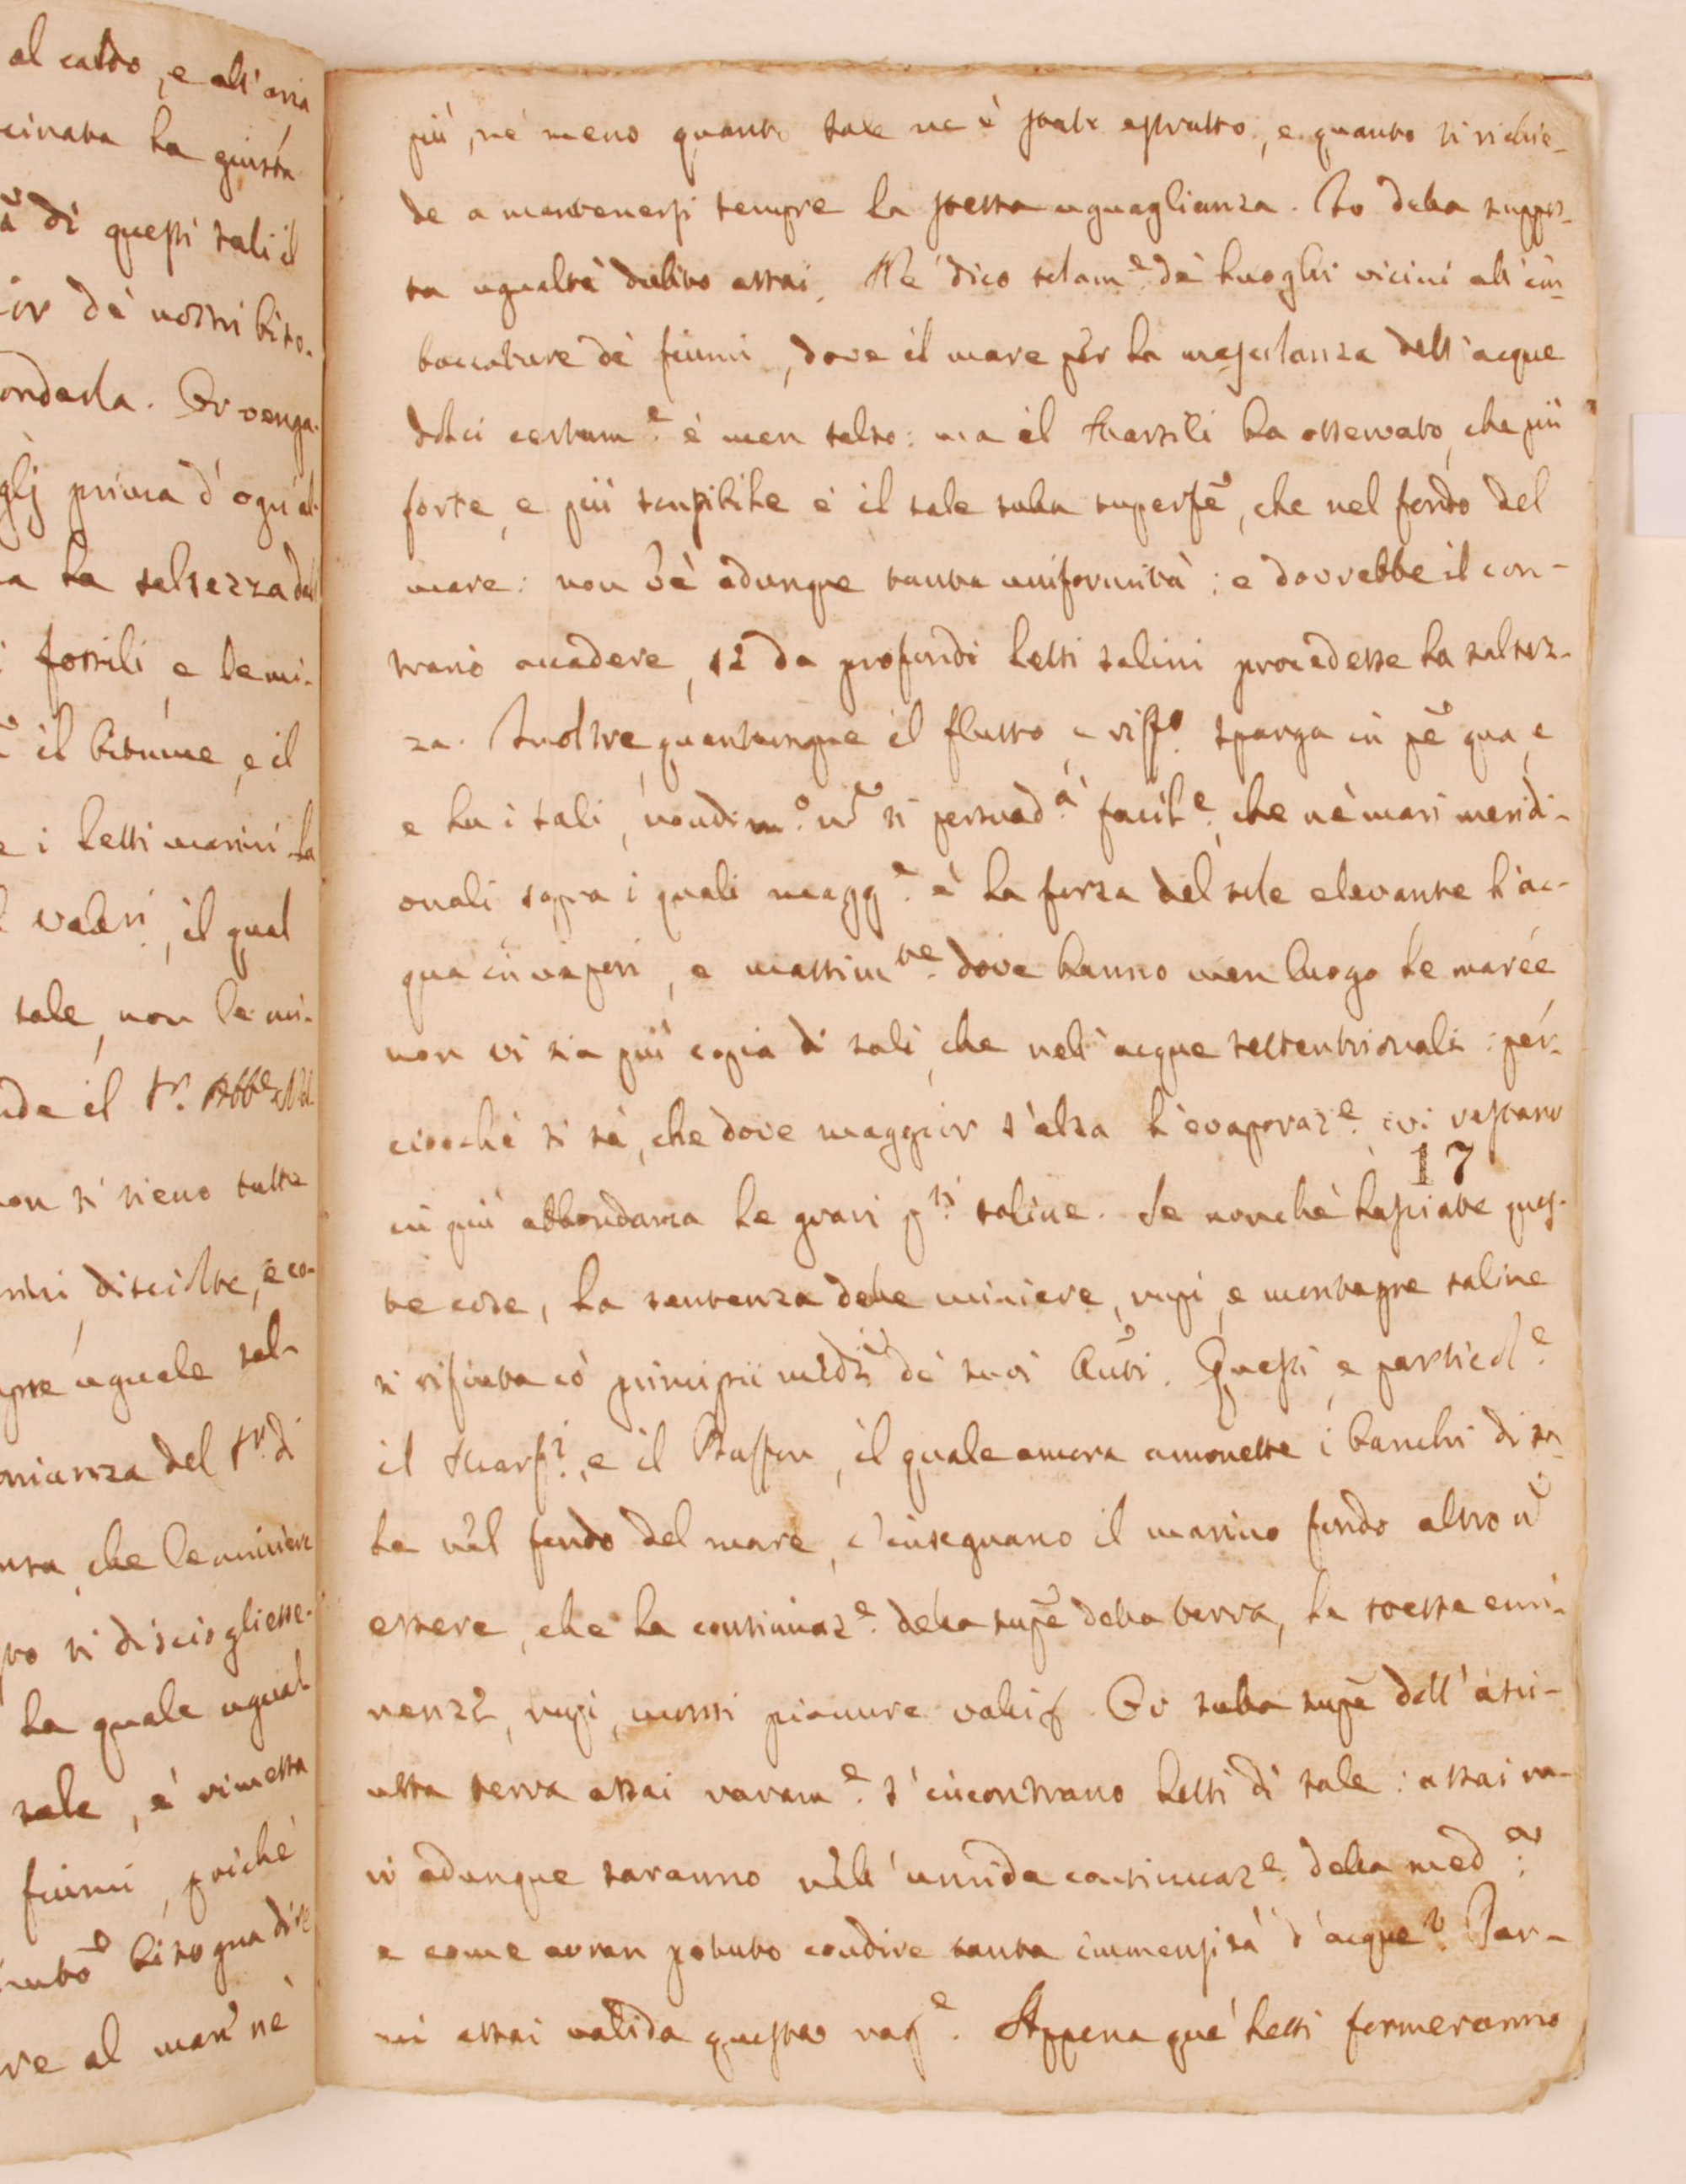 al caldo, e all'aria
cinata la giusta
di questi sali il
ior de' nostri biso-
onderla. Or venga-
glj prima d'ogn'al-
a la salsezza dal
i fossili, e le mi-
il bitume, e il
e i letti marini la
il qual
sale, non le mi-
nde il Sr. Abbe Nol-
on si sieno tutte
disciolte, e co-
pre uguale sal-
onianza del Sr. di
nza, che le miniere
vo si disciogliesse-
la quale ugual
sale, è rimessa
fiumi, poichè
bisogna dire
re al mar nè
più, nè meno quanto sale ne è stato estratto, e quanto si richie-
de a mantenersi sempre la stessa uguaglianza. Io della suppos-
ta ugualtà dubito assai. Nè dico solam.e de' luoghi vicini all'im-
boccature de' fiumi, dove il mare per la mescolanza dell'acque
dolci certam.e è men salso: ma il Marsili ha osservato, che più
forte, e più sensibile è il sale sulla superfẽ, che nel fondo del
mare: non v'è adunque tanta uniformità: e dovrebbe il con-
trario accadere, se da profondi letti salini procedesse la salsez-
za. Inoltre quantunque il flusso, e rifl.o sparga in pẽ qua, e
e là i sali, nondim.o nõ si persuad.à facil.e, che ne' mari meridi-
onali sopra i quali magg.e è la forza del sole elevante l'ac-
qua in vapori, e massim.te dove hanno men luogo le marée
non vi sia più copia di sali, che nell'acque settentrionali: per-
ciocchè si sà, che dove maggior s'alza l'evaporaz.e ivi restano
17
in più abbondanza le gravi p.ti saline. Se nonchè lasciate ques-
te cose, la sentenza delle miniere, rupi, e montagne saline
si rifiuta cò principii med.i de' suoi Auti. Questi, e particol.e
il Mars.i, e il Buffon, il quale ancora ammette i banchi di sa-
le nel fondo del mare, c'insegnano il marino fondo altro nõ
essere, che la continuaz.e della supẽ della terra, le stesse emi-
nenze, rupi, monti pianure valli &. Or sulla supẽ dell'asci-
utta terra assai raram.e s'incontrano letti di sale: assai ra-
ri adunque saranno nell'umida continuaz.e della med.a:
e come avran potuto condire tanta immensità d'acque? Par-
mi assai valida questa rag.e. Appena que' letti formeranno